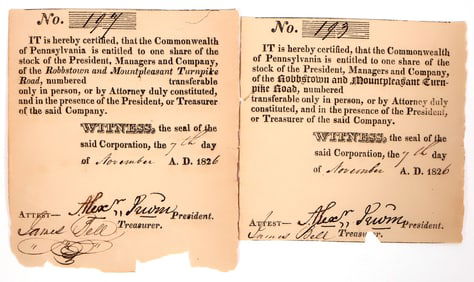 No. 197
IT is hereby certified, that the Commonwealth
of Pennsylvania is entitled to one share of the
stock of the President, Managers and Company,
of the Robbstown and Mountpleasant Turnpike
Road, numbered transferable
only in person, or by Attorney duly constituted,
and in the presence of the President, or Treasurer
of the said Company.
WITNESS, the seal of the
said Corporation, the 7th day
of November A. D. 1826
Alexr. Plumer President.
ATTEST—
James Bell Treasurer.
No. 193
IT is hereby certified, that the Commonwealth
of Pennsylvania is entitled to one share of the
stock of the President, Managers and Company,
of the Robbstown and Mountpleasant Turn-
pike Road, numbered
transferable only in person, or by Attorney duly
constituted, and in the presence of the President,
or Treasurer of the said Company.
WITNESS, the seal of the
said Corporation, the 7th day
of November A. D. 1826
Alexr. Plumer President.
ATTEST—
James Bell Treasurer.